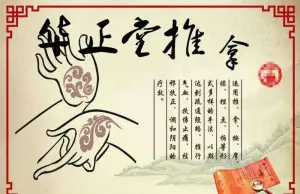 扶正堂推拿
运用推、拿、按、摩、
揉、捏、点、拍等形
式多样的手法，以期
达到疏通经络、推行
气血、扶伤止痛、祛
邪扶正、调和阴阳的
疗效。